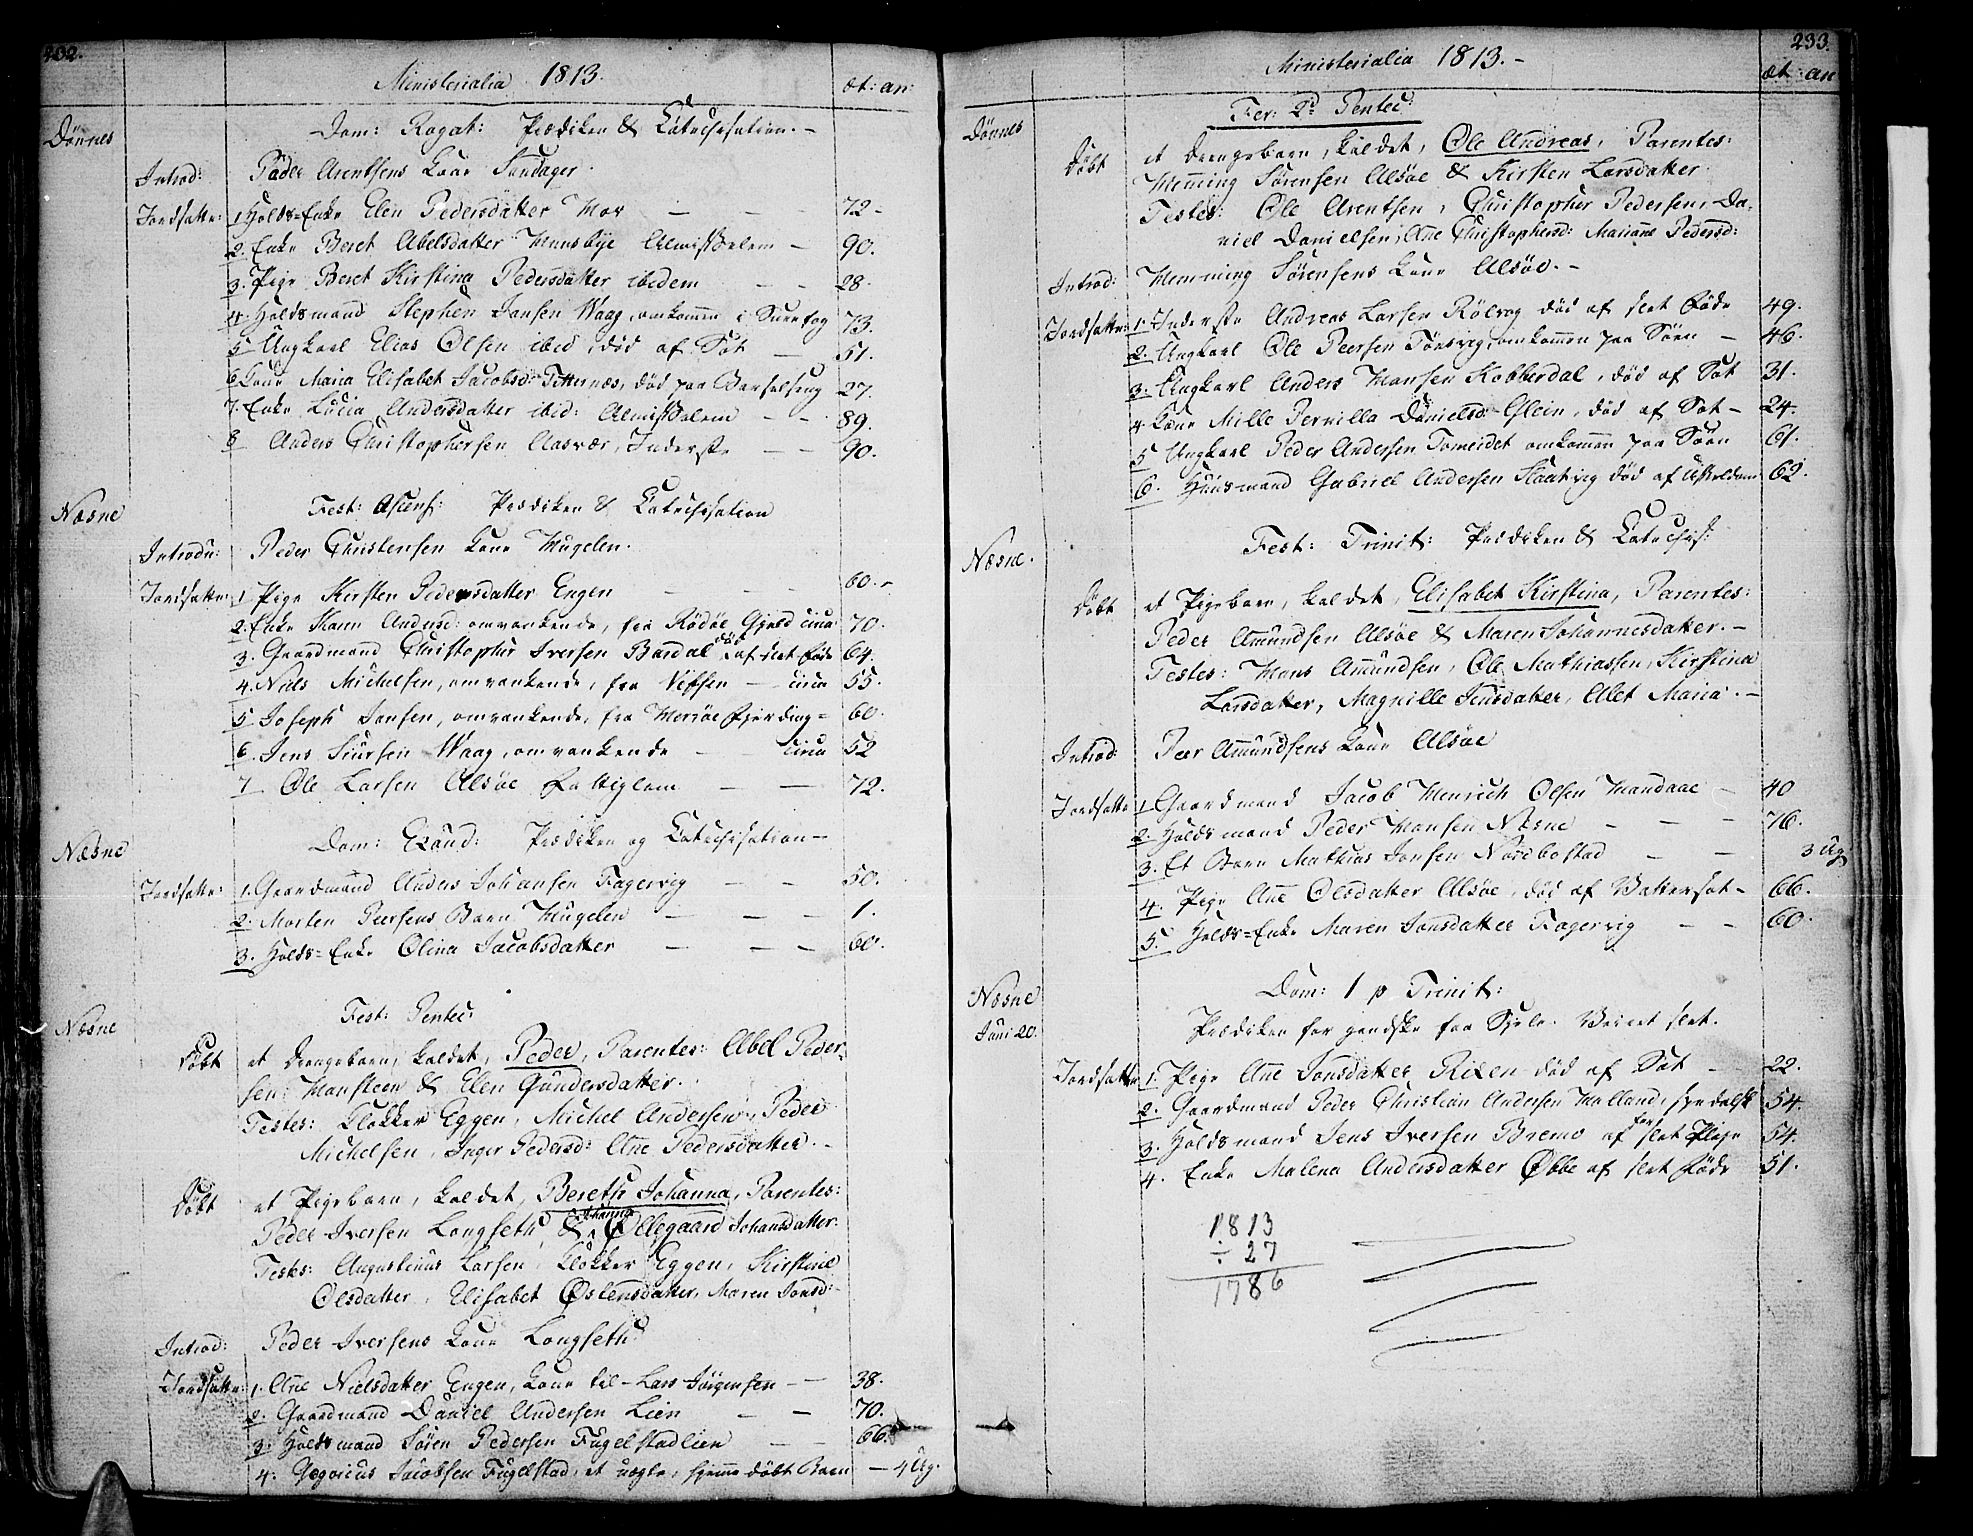 232.
Ministerialia 1813.
æt: an:
Dönnes
Dom: Rogat: Prædiken & Catechisation.-
Introd: Peder Arentsens Kone Sandager.
Jordsatte: 1. Holds=Enke Elen Pedersdatter Mor - - 72-
2. Enke Beret Abelsdatter Hunsbye Almisselem - 90.
3. Pige Beret Kirstina Pedersdatter ibidem - - 28.
4. Holdsmand Stephen Jansen Waag, omkommen i 73.
5 Ungkarl Elias Olsen ibid, död af Sot - 51.
6 Kone Maria Elisabet Jacobsd: Titternæs, död paa Barselseng 27.
7. Enke Lucia Andersdatter ibid: Almisselem - - 89.
8 Anders Christophersen Aasvær, Inderste - - 90.
Næsne
Fest: Ascens: Prædiken & Catechisation
Introdu: Peder Christensen Kone Hugelen.
Jordsatte: 1 Pige Kirsten Pedersdatter Engen - - - 60.-
2. Enke Karen Andersd: omvankende, fra Rödöe Gjeld circa 70.
3. Gaardmand Christopher Iversen Bardal död af slet Föde 64.
4. Niels Michelsen, omvankende, fra Vefsen - circa 55.
5 Joseph Jansen, omvankende, fra Herröe Fjerding= 60.
6. Jens Siursen Waag, omvankende - circa 52
7 Ole Larsen Alsöe Fattiglem - - 72.
Næsne
Dom: Exaud: Prædiken og Catechisation-
Jordsatte: 1. Gaardmand Anders Johansen Fagervig - - 50.
2. Morten Peersens Barn Hugelen - - - 1.
3. Holds=Enke Olina Jacobsdatter - - - 60.
Næsne
Fest: Pentec:
Döbt et Drengebarn, kaldet, Peder, Parentes: Abel Peder-
sen Hansteen & Elen Gundersdatter.
Testes: Klokker Eggen, Michel Andersen, Peder
Michelsen, Inger Pedersd: Ane Pedersdatter.-
Döbt et Pigebarn, kaldet, Bereth Johanna, Parentes:
Peder Iversen Longseth & Johanna Ollegaard Johansdatter.
Testes: Augustinus Larsen, Klokker Eggen, Kirstine
Olsdatter, Elisabet Östensdatter, Maren Jonsd:-
Introd: Peder Iversens Kone Longseth
Jordsatte: 1. Ane Nielsdatter Engen, Kone til Lars Jörgensen - 38.
2. Gaardmand Daniel Andersen Lien - - 70.
3. Holdsmand Sören Pedersen Fugelstadlien - - 66.
4. Jacobsen Fugelstad, et uægte, hjemmedöbt Barn - 4 Ug.
233.
Ministerialia 1813.-
æt: an
Dönnes
Fer: 2d Pentec:
Döbt et Drengebarn, kaldet, Ole Andreas, Parentes:
Hemming Sörensen Alsöe & Kirsten Larsdatter.
Testes: Ole Arentsen, Christopher Pedersen, Da-
niel Danielsen, Ane Christophersd: Mariane Pedersd:
Introd: Hemming Sörensens Kone Alsöe.-
Jordsatte: 1. Inderste Andreas Larsen Rölvog död af slet Föde 49.
2. Ungkarl Ole Peersen Tönsvig, omkommen paa Söen - 46.
3. Ungkarl Anders Hansen Kobberdal, död af Sot 31.
4 Kone Mille Pernilla Danielsd: Glein, död af Sot - 24.
5 Ungkarl Peder Andersen Tomeidet omkommen paa Söen 61.
6. Huusmand Gabriel Andersen Slaatvig död af Alderdom 62.
Næsne.
Fest: Trinit: Prædiken & Catechis:
Döbt et Pigebarn, kaldet, Elisabet Kirstina, Parentes:
Peder Amundsen Alsöe & Maren Johannesdatter.-
Testes: Hans Amundsen, Ole Mathiassen, Kirstina
Larsdatter, Magnille Jensdatter, Alet Maria.-
Introd: Peer Amundsens Kone Alsöe
Jordsatte 1. Gaardmand Jacob Henrich Olsen Handaae - 40
2. Holdsmand Peder Hansen Næsne - - - 76.
3. Et Barn Mathias Jonsen Nordbostad - - 3 Ug
4. Pige Ane Olsdatter Alsöe, död af Vattersot - 66.
5. Holds=Enke Maren Jonsdatter Fagervig - - 60.
Næsne
Juni 20.
Dom: 1 p Trinit:
Prædiken for ganske faa Sjele. Veiret slet.
Jordsatte 1. Pige Ane Jonsdatter Rixen död af Sot - 22.
2. Gaardmand Peder Christian Andersen Holland, spedalsk 54.
3. Holdsmand Jens Iversen Bremo af for slet Pleje 54.
4. Enke Malena Andersdatter Öbbe af slet Föde 51.
1813
÷ 27
1786